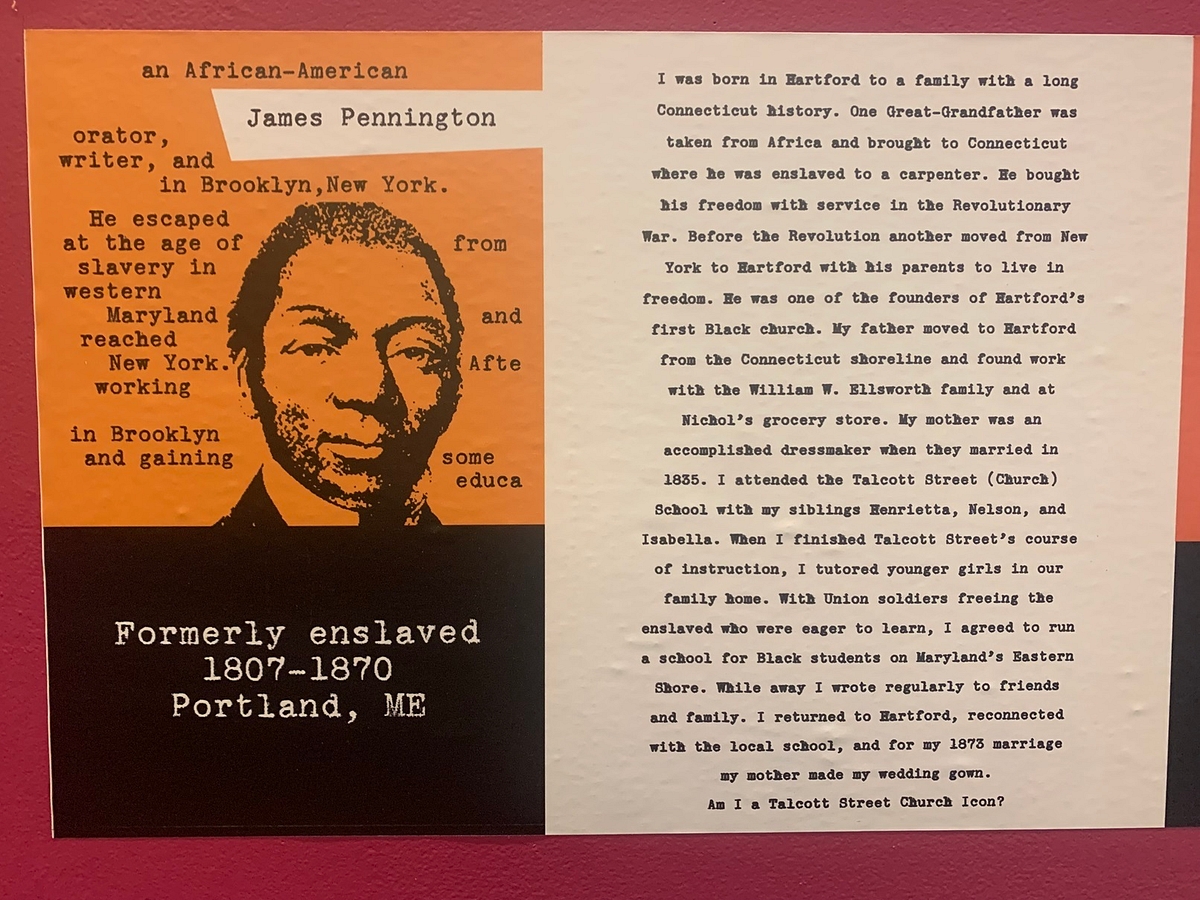 an African-American
James Pennington
orator,
writer, and
in Brooklyn,New York.
He escaped
at the age of from
slavery in
western
Maryland and
reached
New York. Afte
working
in Brooklyn
and gaining some
educa
Formerly enslaved
1807-1870
Portland, ME
I was born in Hartford to a family with a long
Connecticut history. One Great-Grandfather was
taken from Africa and brought to Connecticut
where he was enslaved to a carpenter. He bought
his freedom with service in the Revolutionary
War. Before the Revolution another moved from New
York to Hartford with his parents to live in
freedom. He was one of the founders of Hartford's
first Black church. My father moved to Hartford
from the Connecticut shoreline and found work
with the William W. Ellsworth family and at
Nichol's grocery store. My mother was an
accomplished dressmaker when they married in
1835. I attended the Talcott Street (Church)
School with my siblings Henrietta, Nelson, and
Isabella. When I finished Talcott Street's course
of instruction, I tutored younger girls in our
family home. With Union soldiers freeing the
enslaved who were eager to learn, I agreed to run
a school for Black students on Maryland's Eastern
Shore. While away I wrote regularly to friends
and family. I returned to Hartford, reconnected
with the local school, and for my 1873 marriage
my mother made my wedding gown.
Am I a Talcott Street Church Icon?